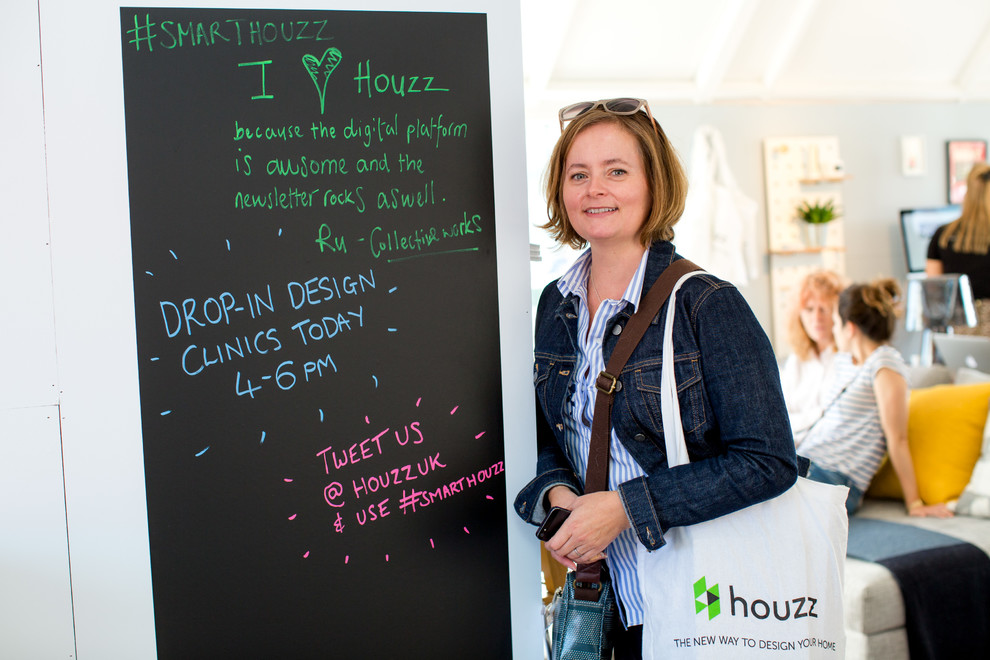 #SMARTHOUZZ
I ♥ Houzz
because the digital platform
is awsome and the
newsletter rocks aswell.
Ru - Collective works
DROP-IN DESIGN
CLINICS TODAY
4-6 PM
TWEET US
@ HOUZZUK
& USE #SMARTHOUZZ
houzz
THE NEW WAY TO DESIGN YOUR HOME